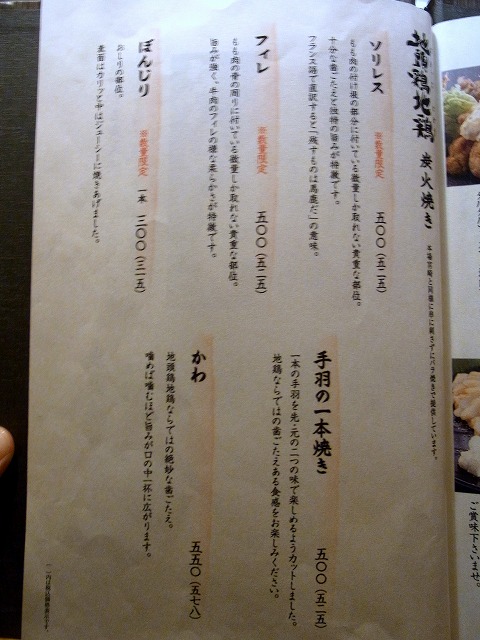 地頭鶏地鶏 炭火焼き
本場宮崎と同様に串に刺さずにバラ焼きで提供しています。
ソリレス ※数量限定 五〇〇(五二五)
もも肉の付け根の部分に付いている微量しか取れない貴重な部位。
十分な歯ごたえと独特の旨みが特徴です。
フランス語で直訳すると「残すものは馬鹿だ」の意味。
フィレ ※数量限定 五〇〇(五二五)
もも肉の骨の周りに付いている微量しか取れない貴重な部位。
旨みが強く、牛肉のフィレの様な柔らかさが特徴です。
ぼんじり ※数量限定 一本 三〇〇(三一五)
おしりの部位。
表面はカリッと中はジューシーに焼きあげました。
手羽の一本焼き 五〇〇(五二五)
一本の手羽を先・元の二つの味で楽しめるようカットしました。
地鶏ならではの歯ごたえある食感をお楽しみください。
かわ 五五〇(五七八)
地頭鶏地鶏ならではの絶妙な歯ごたえ。
噛めば噛むほど旨みが口の中一杯に広がります。
ご賞味下さいませ。